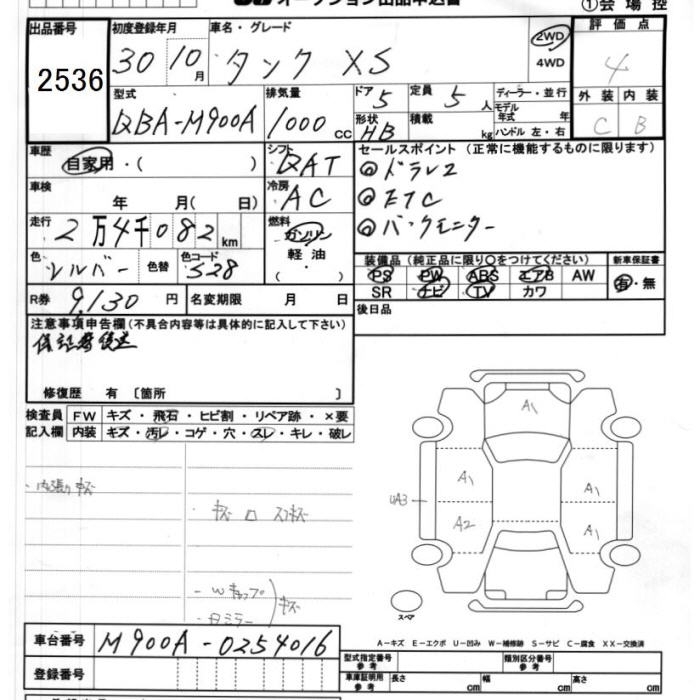 オークション出品申込書
①会場控
出品番号
2536
初度登録年月
30 10月
車名・グレード
タンク XS
2WD
4WD
評価点
4
外装 内装
C B
型式
DBA-M900A
排気量
1000 cc
ドア
5
定員
5人
形状
HB
積載
kg
ディーラー・並行
モデル年式 年
ハンドル 左・右
車歴
自家用・( )
シフト
DAT
セールスポイント (正常に機能するものに限ります)
◎ドラレコ
◎ETC
◎バックモニター
車検
年 月( 日)
冷房
AC
走行
2万4千082km
燃料
ガソリン
軽油
( ・ )
色
シルバー
色替
色コード
S28
装備品 (純正品に限り○をつけてください)
PS PW ABS エアB AW
SR ナビ TV カワ
新車保証書
有・無
R券
9,130円
名変期限 月 日
後日品
注意事項申告欄(不具合内容等は具体的に記入して下さい)
保証書後送
修復歴 有 〔箇所 〕
検査員記入欄
FW キズ・飛石・ヒビ割・リペア跡・×要
内装 キズ・汚レ・コゲ・穴・スレ・キレ・破レ
・内張りキズ
・Wキャップ
・Bミラー
キズ
A1
A1
A1
UA3
A2
A1
スペア
A-キズ E-エクボ U-凹み W-補修跡 S-サビ C-腐食 XX-交換済
車台番号
M900A-0254016
登録番号
型式指定番号 参考
類別区分番号 参考
車庫証明用 参考
長さ cm
幅 cm
高さ cm